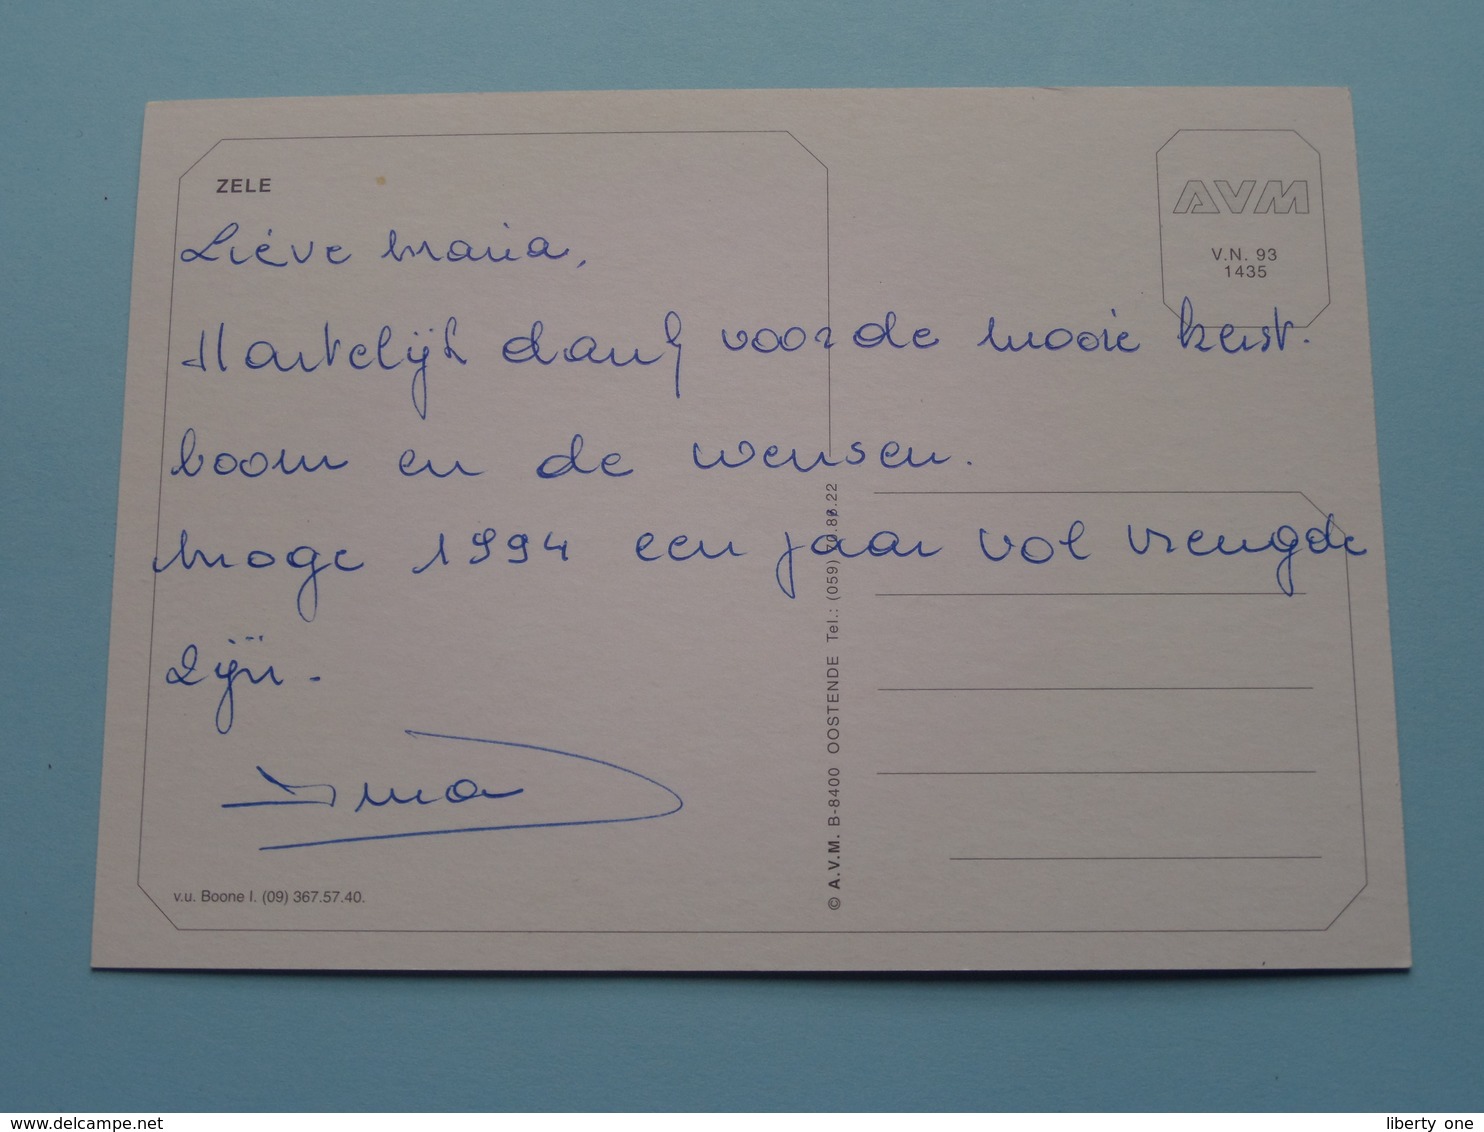 ZELE
AVM
V.N. 93
1435
Liéve Maria,
Hartelijk dank voor de mooie kerst-
boom en de wensen.
Moge 1994 een jaar vol vreugde
zijn.
v.u. Boone I. (09) 367.57.40.
© A.V.M. B-8400 OOSTENDE Tel.: (059)
www.delcampe.net
liberty one